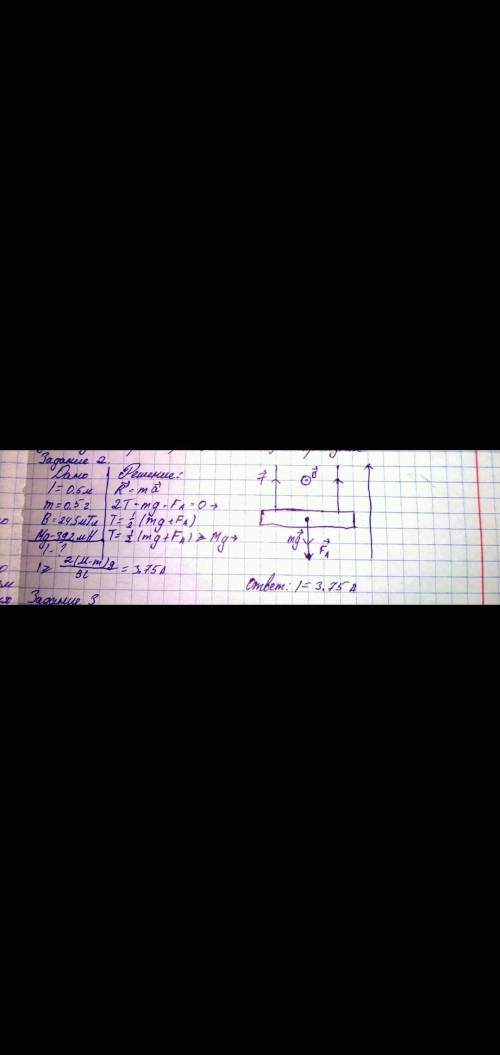 Задание 2.
Дано
l = 0,5м
m = 0,5г
B = 24,5мТл
Mg = 39,2мН
I - ?
Решение:
R⃗ = ma⃗
2T - mg - F_A = 0 →
T = ½ (mg + F_A)
T = ½ (mg + F_A) ≥ Mg →
I ≥ 2(M-m)g / Bl = 3,75А
T⃗
B⃗
mg⃗
F⃗_A
Ответ: I = 3,75А
Задание 3